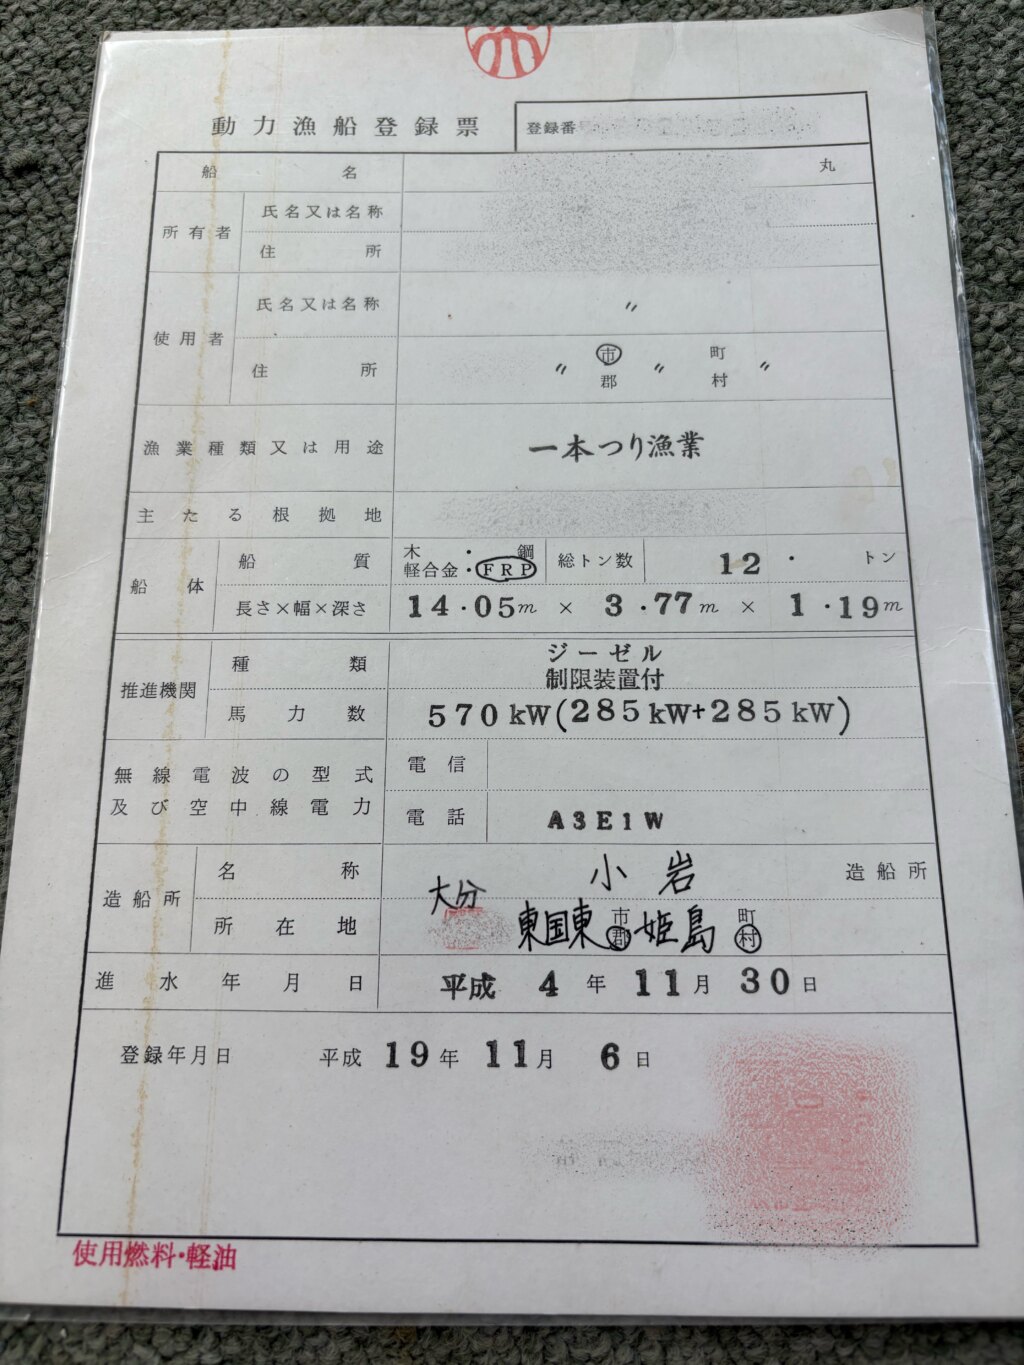 動力漁船登録票
登録番
船名 丸
所有者 氏名又は名称
住所
使用者 氏名又は名称 〃
住所 〃 市郡 〃 町村 〃
漁業種類又は用途 一本つり漁業
主たる根拠地
船体 船質 木・鋼 軽合金・FRP 総トン数 12・トン
長さ×幅×深さ 14.05m × 3.77m × 1.19m
推進機関 種類 ジーゼル
制限装置付
馬力数 570kW(285kW+285kW)
無線電波の型式及び空中線電力 電信
電話 A3E1W
造船所 名称 小岩 造船所
所在地 大分 東国東 市郡 姫島 町村
進水年月日 平成 4年 11月 30日
登録年月日 平成 19年 11月 6日
使用燃料・軽油